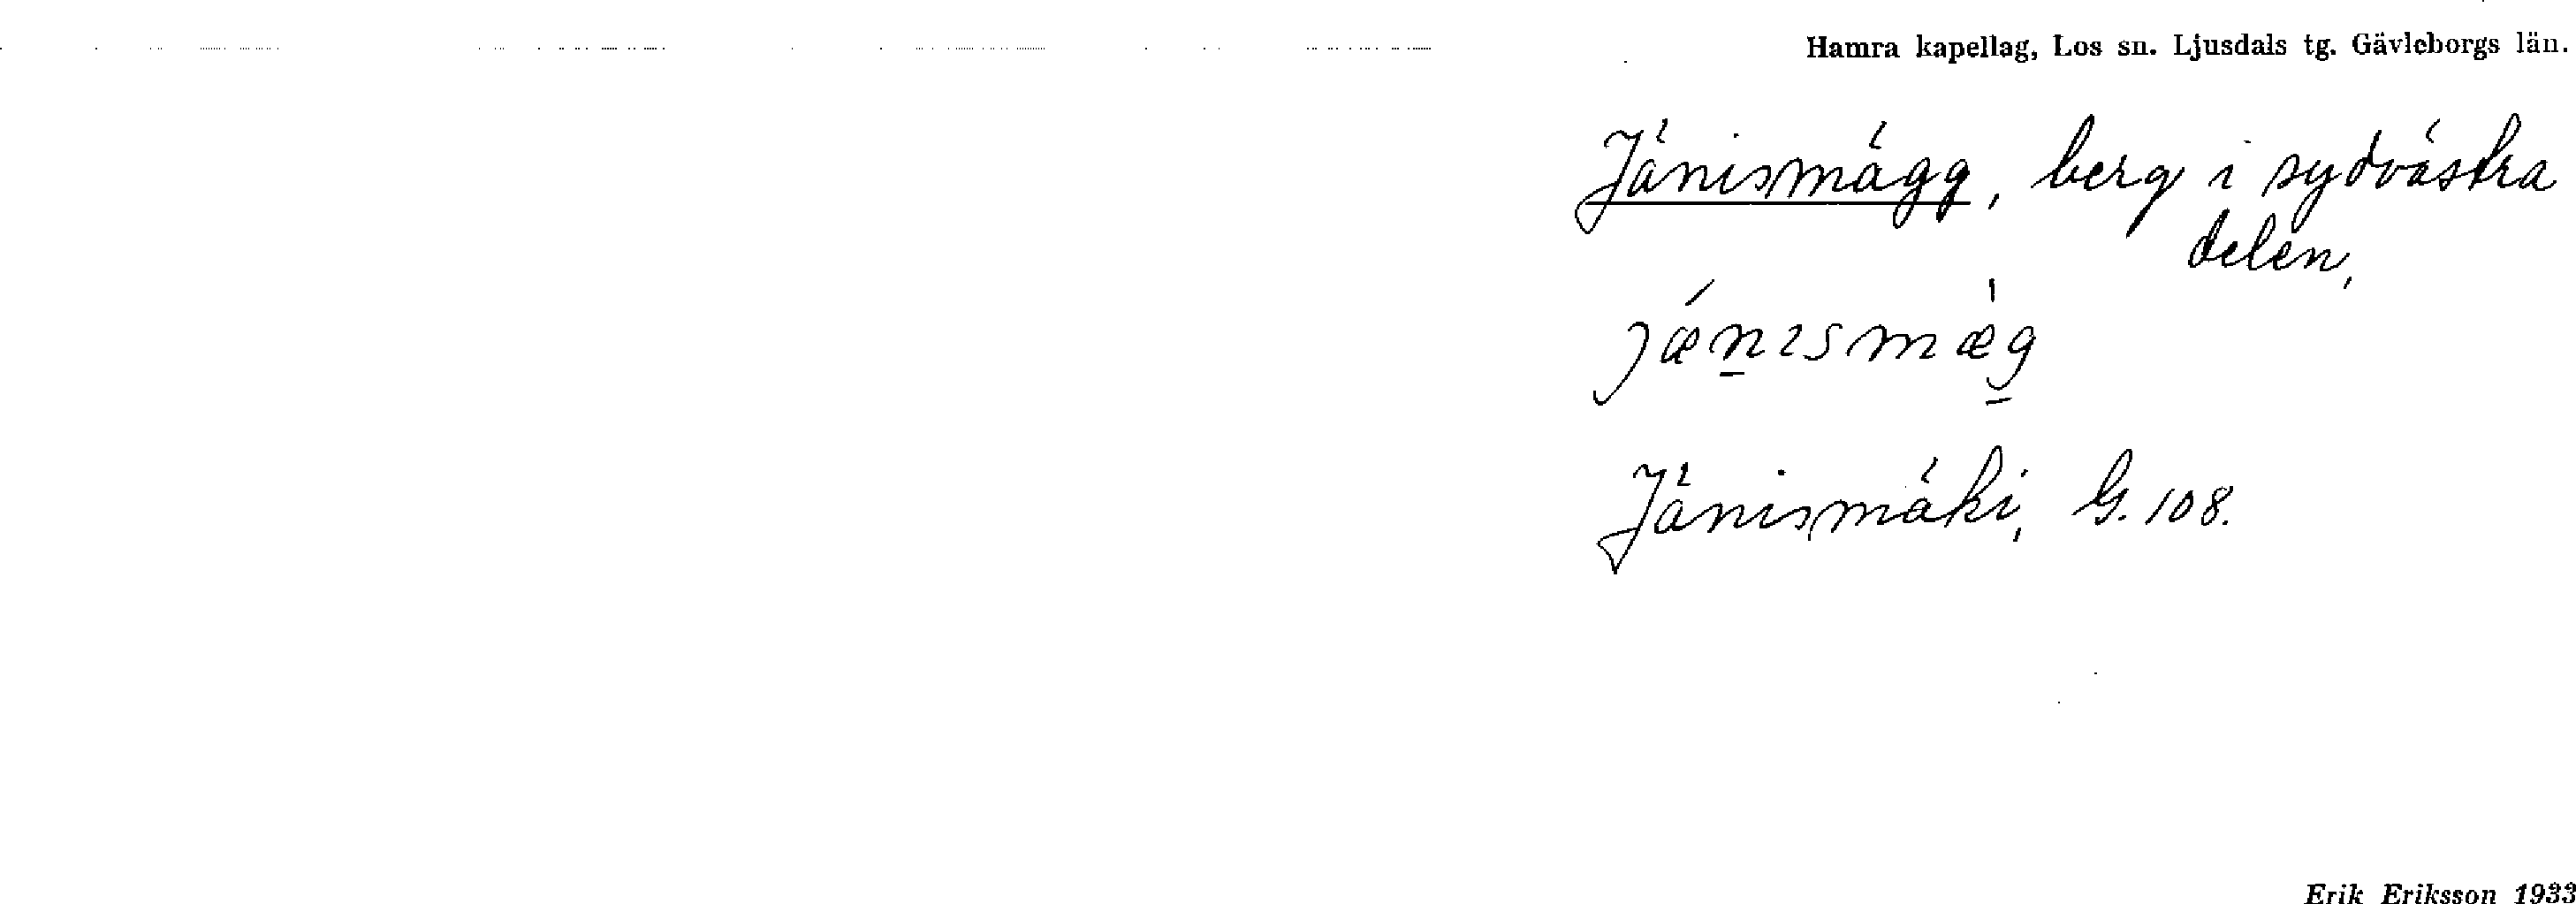 Hamra kapellag, Los sn. Ljusdals tg. Gävleborgs län.
Jänismägg, berg i sydvästra
delen,
jǽnısmæ̀g
Jänismäki, G. 108.
Erik Eriksson 1933